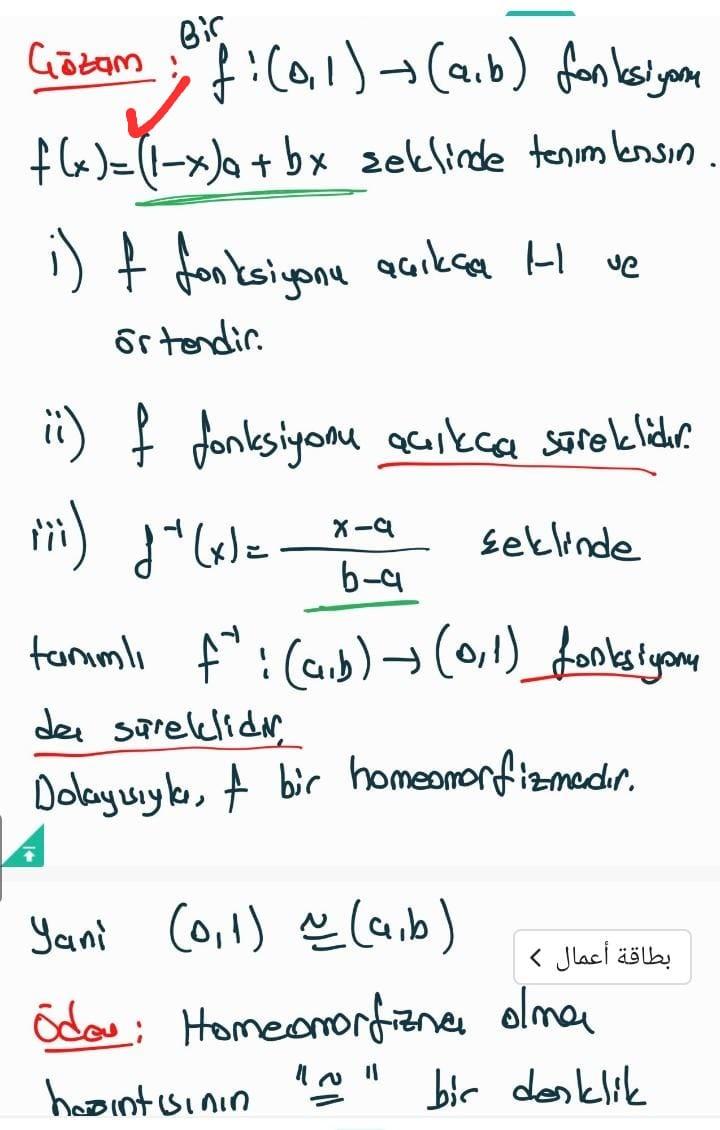 Çözüm : Bir f : (0,1) → (a,b) fonksiyonu
f(x)=(1-x)a + bx şeklinde tanımlansın.
i) f fonksiyonu açıkça 1-1 ve
örtendir.
ii) f fonksiyonu açıkça süreklidir.
iii) f⁻¹(x) = (x-a)/(b-a) şeklinde
tanımlı f⁻¹ : (a,b) → (0,1) fonksiyonu
da süreklidir.
Dolayısıyla, f bir homeomorfizmadır.
Yani (0,1) ≅ (a,b)
بطاقة أعمال >
Ödev : Homeomorfizma olma
bağıntısının "≅" bir denklik